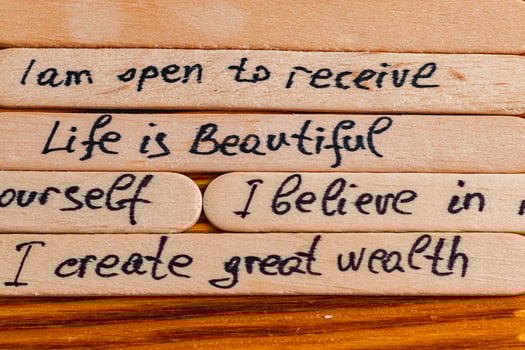 I am open to receive
Life is Beautiful
ourself I believe in
I create great wealth